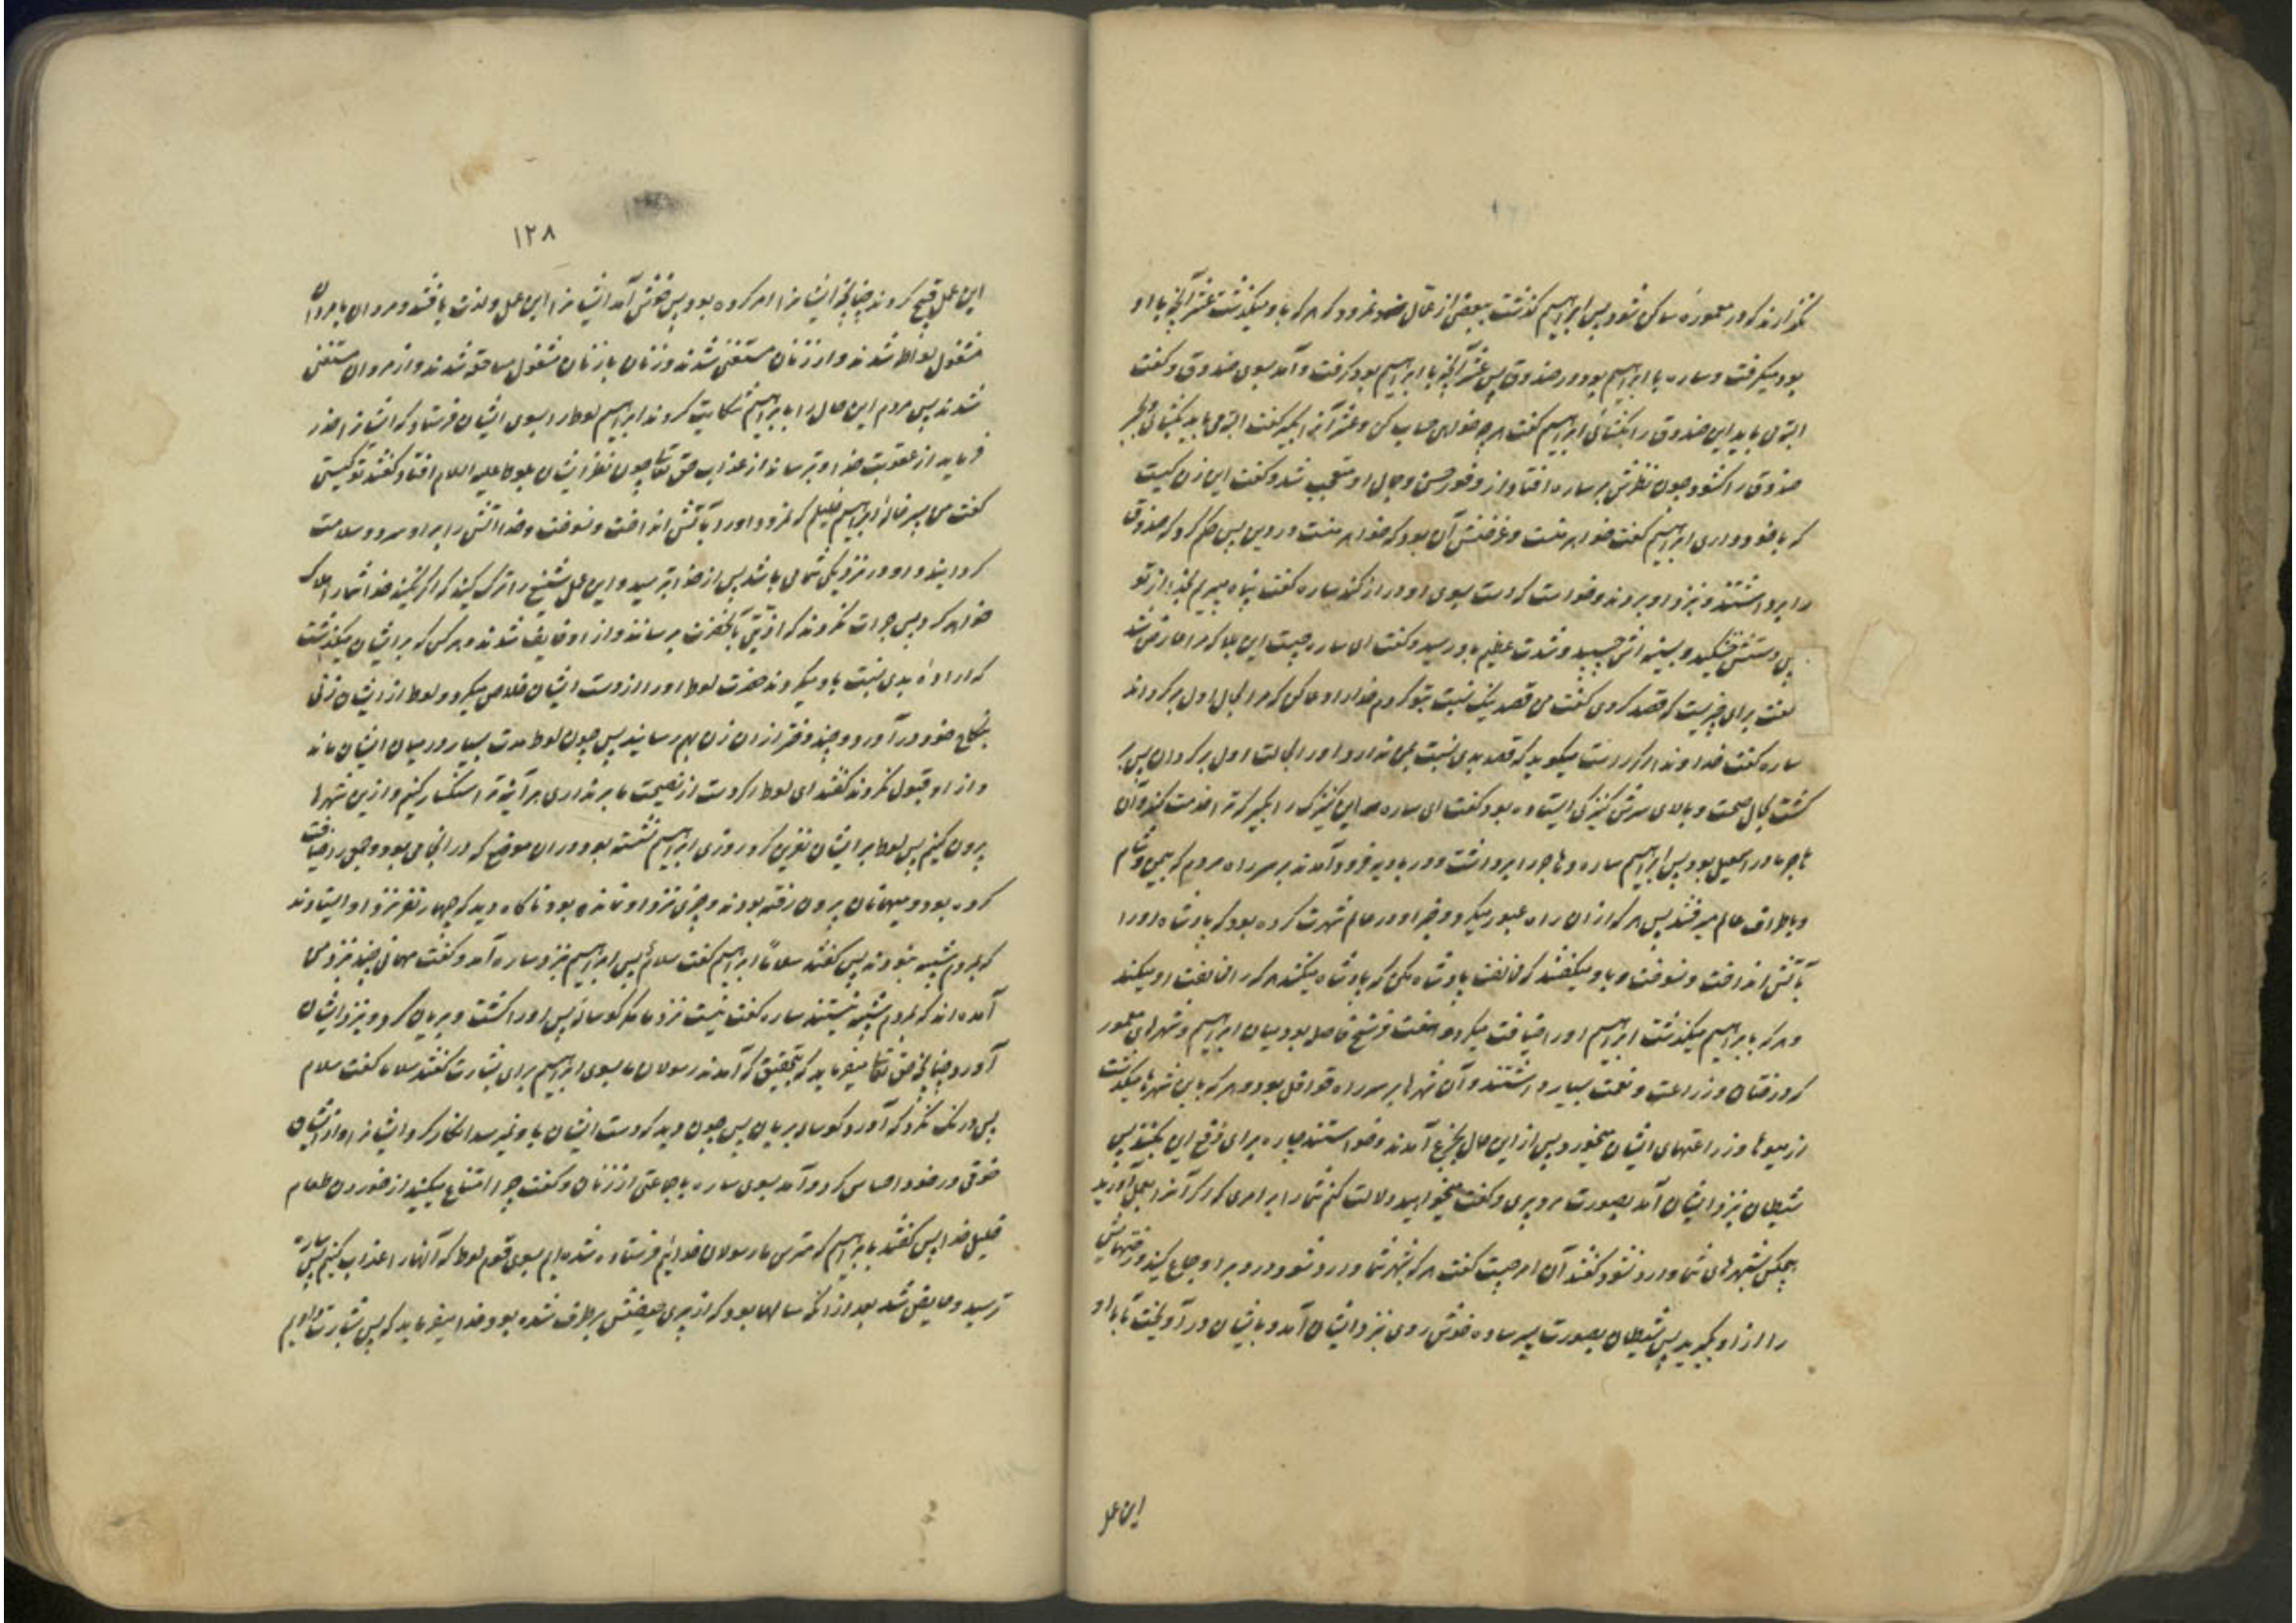 نگذارند که در معموره ساکن شود پس ابراهیم گذشت ببعضی از عمّال نمرود که هر که باو میگذشت عشر آنچه با او
بود میگرفت و ساره با ابراهیم بود در صندوق پس عشر آنچه با ابراهیم بود گرفت و آمد بسوی صندوق و گفت
البته می باید این صندوق را بگشائی ابراهیم گفت هر چه خواهی حساب کن و عشر آنرا بگیر گفت البته می باید بگشائی و بجبر
صندوق را گشود چون نظرش بر ساره افتاد از وفور حسن و جمال او متعجب شد و گفت این زن کیست
که با خود داری ابراهیم گفت خواهر منست و غرضش آن بود که خواهر منست در دین پس حکم کرد که صندوق
را برداشتند و نزد او بردند و خواست که دست بسوی او دراز کند ساره گفت پناه میبرم بخدا از تو
پس دستش خشکید و بسینه اش چسپید و شدت عظیم باو رسید و گفت ای ساره چیست این بلا که مرا عارض شد
گفت برای چیزیست که قصد کردی گفت من قصد نیک نسبت بتو کردم خدا را دعا کن که مرا بحال اول برگرداند
ساره گفت خداوندا اگر راست میگوید که قصد بدی نسبت بمن ندارد او را بحالت اول برگردان پس بر
گشت بحال صحت و بالای سرش کنیزکی ایستاده بود گفت ای ساره این کنیزک را بگیر که ترا خدمت کند و آن
هاجر مادر اسمعیل بود پس ابراهیم ساره و هاجر را برداشت و در بادیه فرود آمدند بر سر راه مردم که بیمن و شام
و باطراف عالم میرفتند پس هر که از ان راه عبور میکرد و خبر او در عالم شهرت کرده بود که پادشاه او را
بآتش انداخت و نسوخت و باو میگفتند که مخالفت پادشاه مکن که پادشاه میکشد هر که را مخالفت او میکند
و هر که بابراهیم میگذشت ابراهیم او را ضیافت میکرد و هفت فرسخ فاصله بود میان ابراهیم و شهرهای معمور
که درختان و زراعت و نعمت بسیار داشتند و آن شهرها بر سر راه قوافل بود و هر که باین شهرها میگذشت
از میوها و زراعتهای ایشان میخورد پس از این حال بجزع آمدند و خواستند چاره برای دفع این بکنند پس
شیطان نزد ایشان آمد بصورت مرد پیری و گفت میخواهید دلالت کنم شما را بر امری که اگر آنرا بعمل آورید
هیچکس بشهرهای شما وارد نشود گفتند آن امر چیست گفت هر که بشهر شما وارد شود در دبر او جماع کنید و رختهایش
را از او بگیرید پس شیطان بصورت پسر ساده خوش روی نزد ایشان آمد و بایشان در آویخت تا با او
این عمل
۱۲۸
این عمل قبیح کردند چنانچه ایشانرا امر کرده بود پس خوش آمد ایشانرا این عمل و لذت یافتند و مردان بامردان
مشغول بلواط شدند و از زنان مستغنی شدند و زنان با زنان مشغول مساحقه شدند و از مردان مستغنی
شدند پس مردم این حال را بابراهیم شکایت کردند ابراهیم لوط را بسوی ایشان فرستاد که ایشانرا حذر
فرماید از عقوبت خدا و بترساند از عذاب حق تعالی چون نظر ایشان بلوط علیه السلام افتاد گفتند تو کیستی
گفت من پسر خاله ابراهیم خلیلم که نمرود او را بآتش انداخت و نسوخت و خدا آتش را بر او سرد و سلامت
گردانید و او در نزدیکی شما می باشد پس از خدا بترسید و این عمل شنیع را ترک کنید که اگر نکنید خدا شما را هلاک
خواهد کرد پس جرات نکردند که اذیتی بآنحضرت برسانند و از او خایف شدند و هر کس که بر ایشان میگذشت
که اراده بدی نسبت باو میکردند حضرت لوط او را از دست ایشان خلاص میکرد و لوط از ایشان زنی
بنکاح خود در آورد و چند دختر از ان زن بهم رسانید پس چون لوط مدت بسیار در میان ایشان ماند
و از او قبول نکردند گفتند ای لوط اگر دست از نصیحت ما بر نداری هر آینه ترا سنگسار کنیم و ازین شهرها
بیرون کنیم پس لوط بر ایشان نفرین کرد روزی ابراهیم نشسته بود در ان موضع که در انجا می بود و جمعی را ضیافت
کرده بود و میهمانان بیرون رفته بودند و چیزی نزد او نمانده بود ناگاه دید که چهار نفر نزد او ایستادند
که بمردم شبیه نبودند پس گفتند سلاماً ابراهیم گفت سلامٌ پس ابراهیم نزد ساره آمد و گفت مهمانی چند نزد من
آمده اند که بمردم شبیه نیستند ساره گفت نیست نزد ما مگر گوساله پس او را کشت و بریان کرد و نزد ایشان
آورد چنانچه حق تعالی میفرماید که بتحقیق که آمدند رسولان ما بسوی ابراهیم برای بشارت گفتند سلاما گفت سلام
پس درنگ نکرد که آورد گوساله بریان پس چون دید که دست ایشان باو نمیرسد انکار کرد ایشانرا و از ایشان
خوفی در خود احساس کرد و آمد بسوی ساره با جماعتی از زنان و گفت چرا امتناع میکنید از خوردن طعام
خلیل خدا پس گفتند بابراهیم که مترس ما رسولان خدائیم فرستاده شده ایم بسوی قوم لوط که آنها را عذاب کنیم پس ساره
ترسید و حایض شد بعد از آنکه سالها بود که از پیری حیضش برطرف شده بود و خدا میفرماید که پس بشارت دادیم